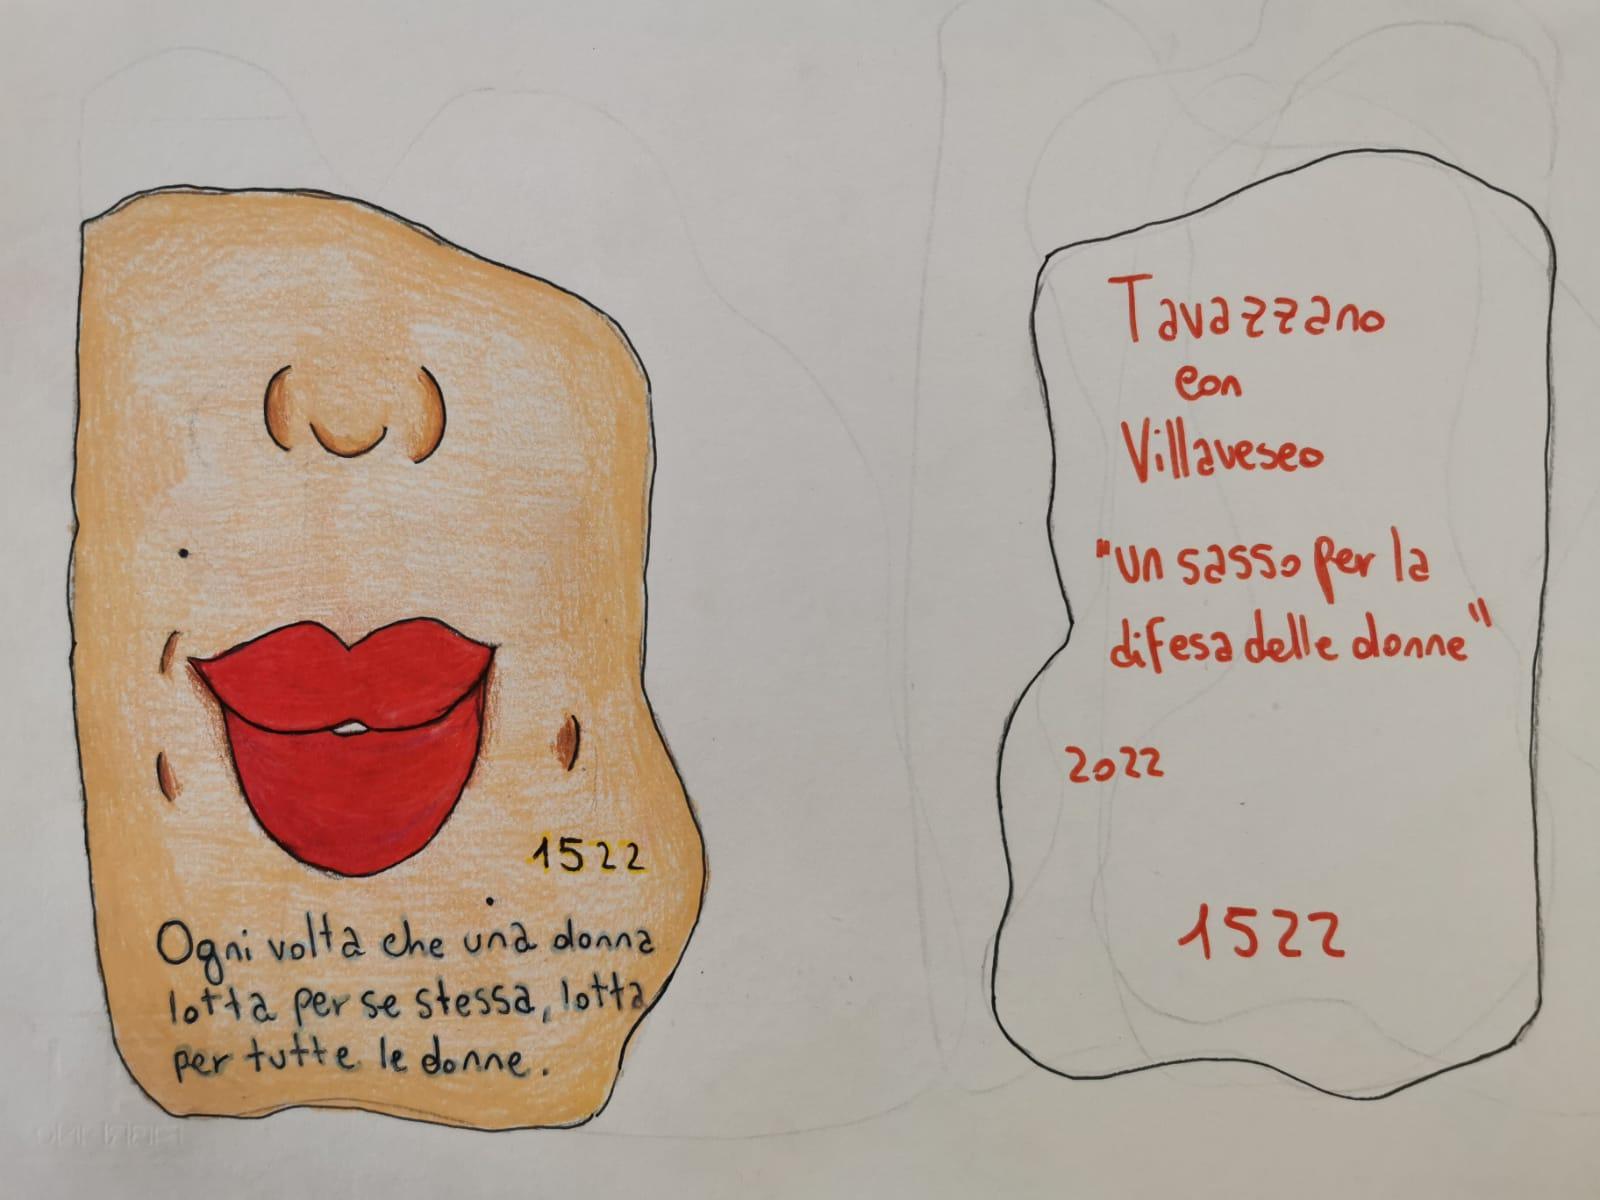 1522
Ogni volta che una donna
lotta per se stessa, lotta
per tutte le donne.
Tavazzano
con
Villavesco
"un sasso per la
difesa delle donne"
2022
1522